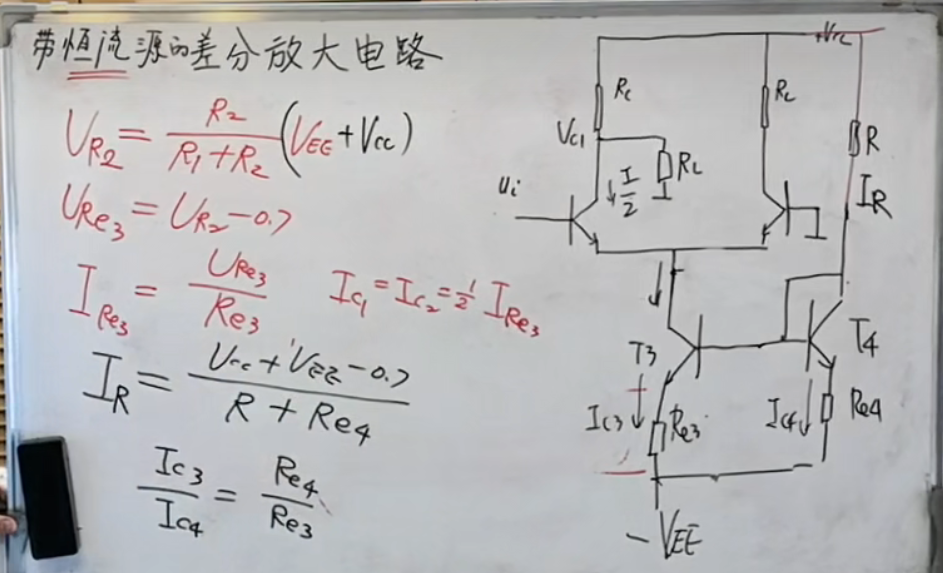 带恒流源的差分放大电路
U_{R2} = \frac{R_2}{R_1+R_2}(V_{EE}+V_{CC})
U_{Re3} = U_{R2} - 0.7
I_{Re3} = \frac{U_{Re3}}{Re3} I_{C1} = I_{C2} = \frac{1}{2} I_{Re3}
I_R = \frac{U_{CC}+V_{EE}-0.7}{R+Re4}
\frac{I_{C3}}{I_{C4}} = \frac{Re4}{Re3}
+Vcc
Rc
Rc
R
Vc1
RL
I/2
ui
IR
T3
T4
Ic3
Re3
Ic4
Re4
-VEE